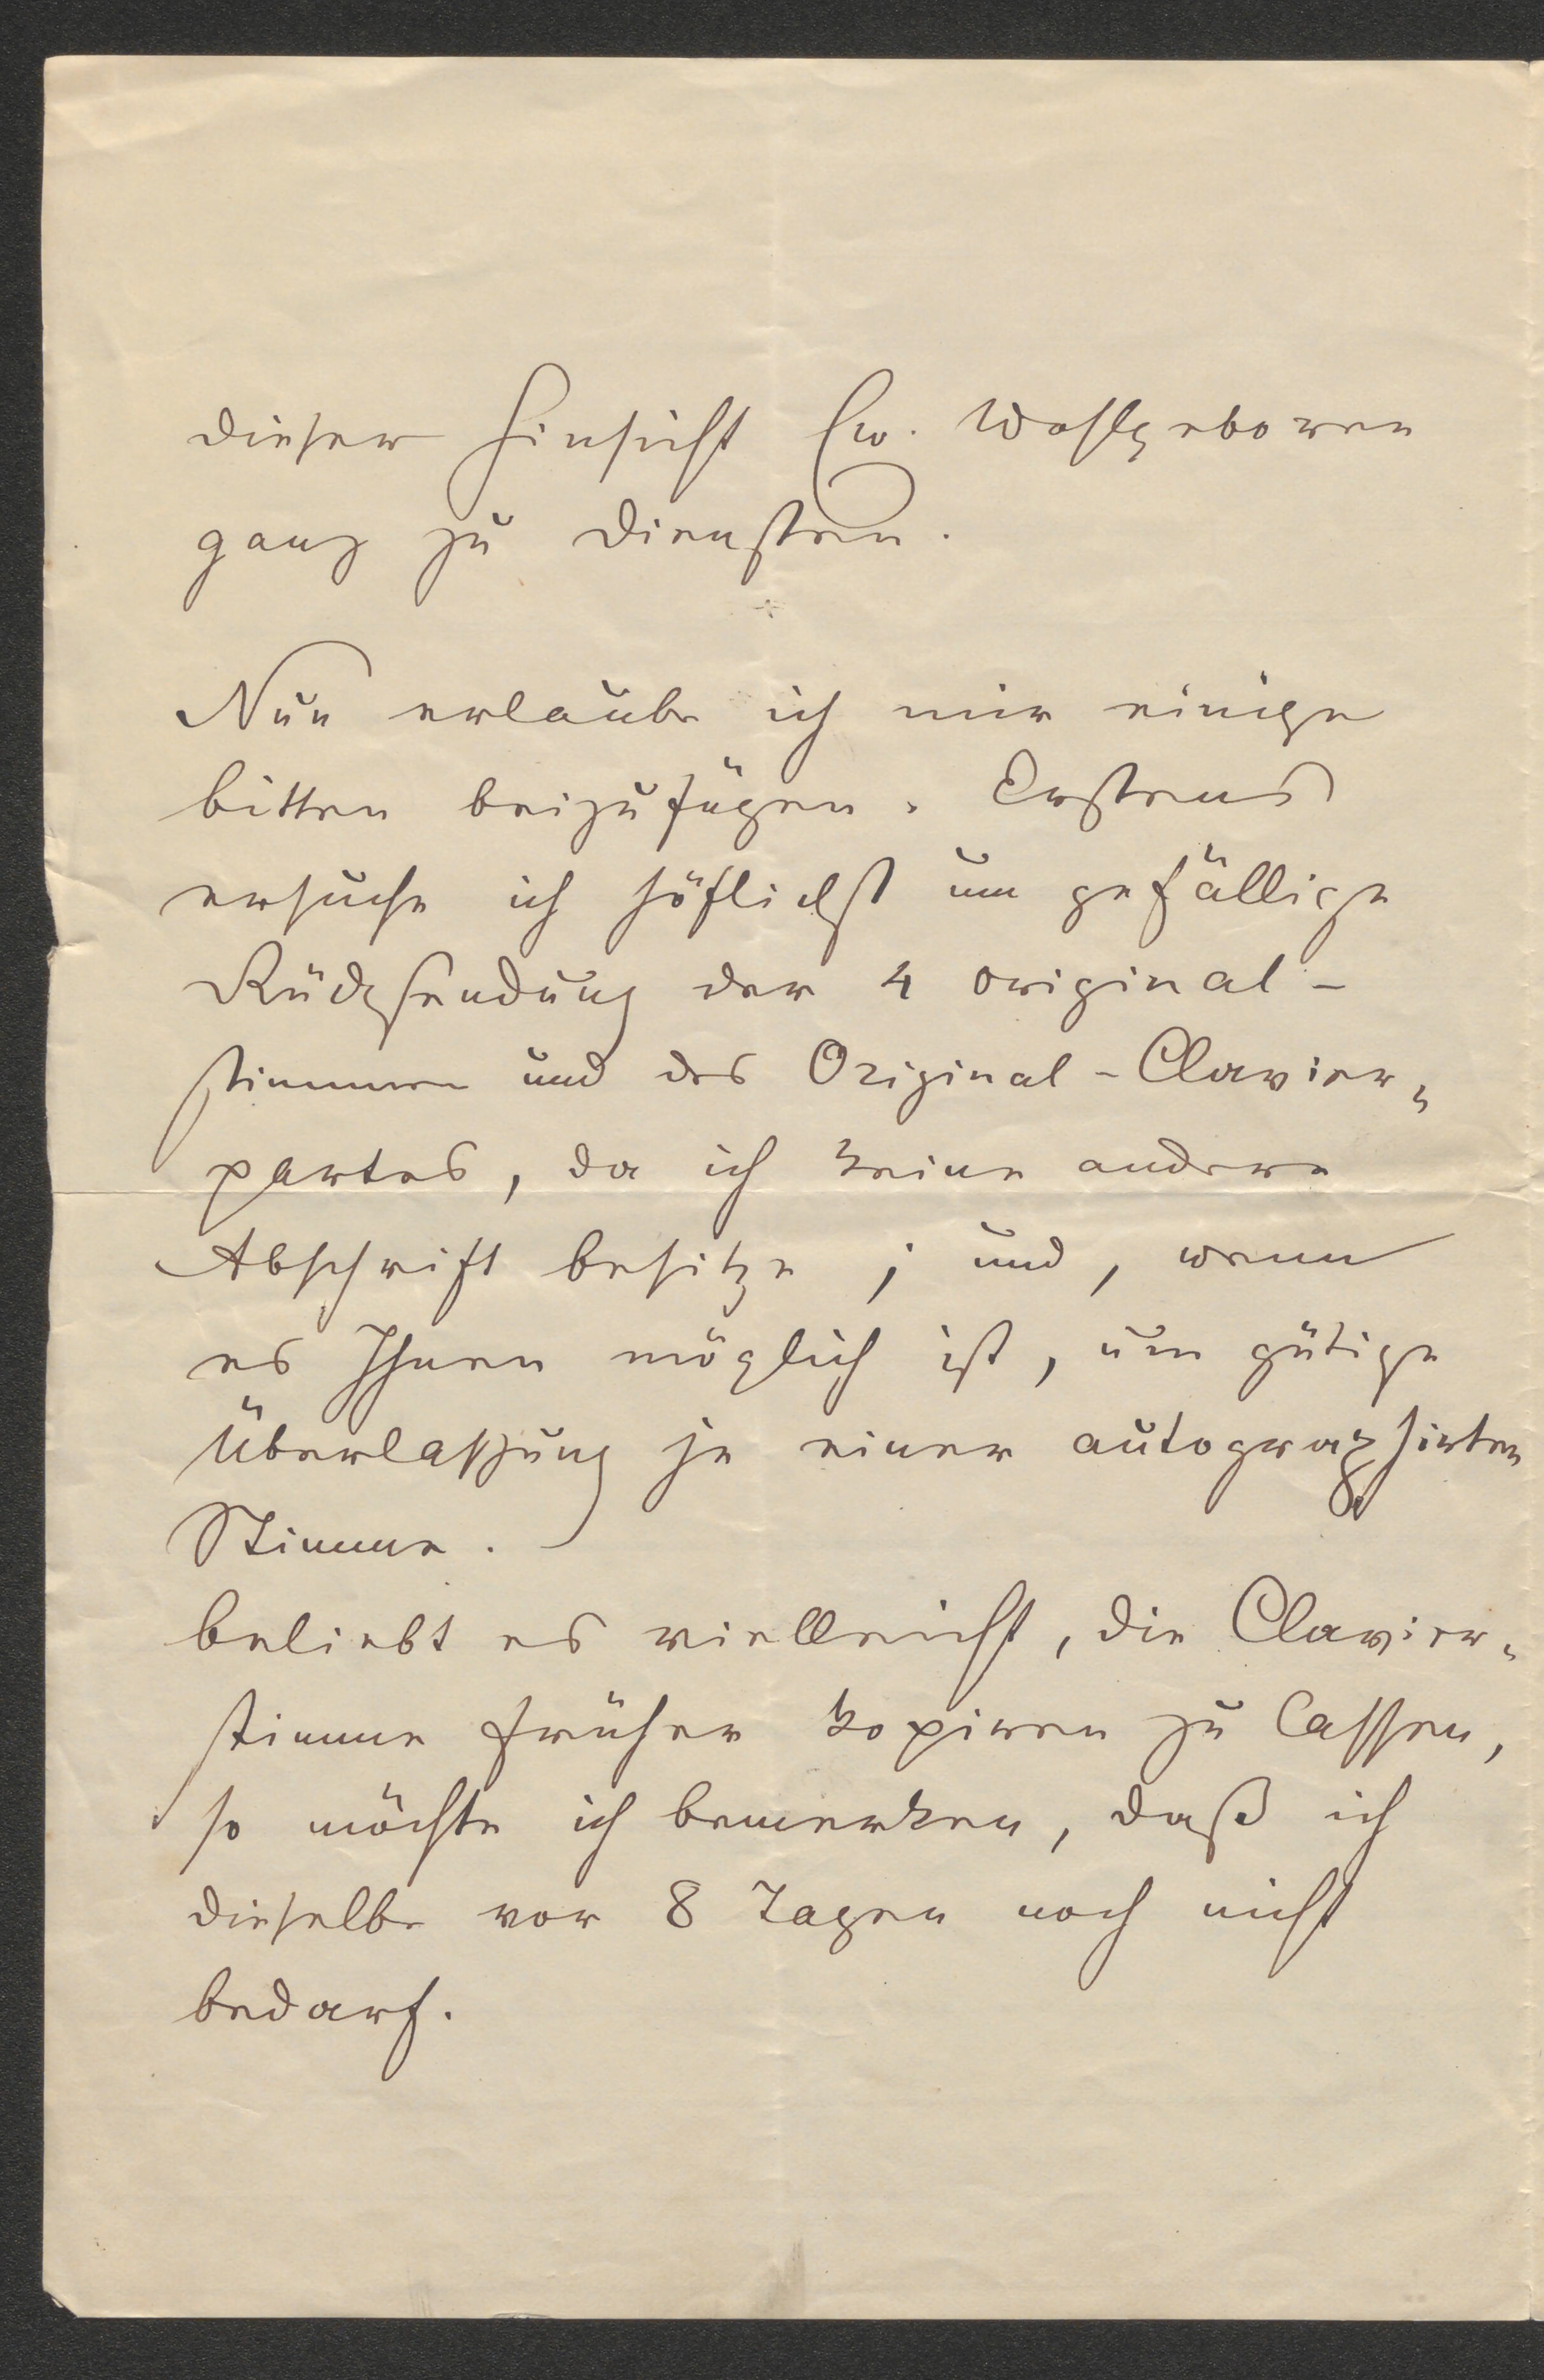 dieser Hinsicht Ew. Wohlgeboren
ganz zu Diensten.
Nun erlaube ich mir einige
bitten beizufügen. Erstens
ersuche ich höflichst um gefällige
Rücksendung der 4 original-
stimmen und des Original-Clavier„
partes, da ich keine andere
Abschrift besitze ; und, wenn
es Ihnen möglich ist, um gütige
Überlassung je einer autographirten
Stimme.
beliebt es vielleicht, die Clavier„
stimme früher kopiren zu lassen,
so möchte ich bemerken, daß ich
dieselbe vor 8 Tagen noch nicht
bedarf.